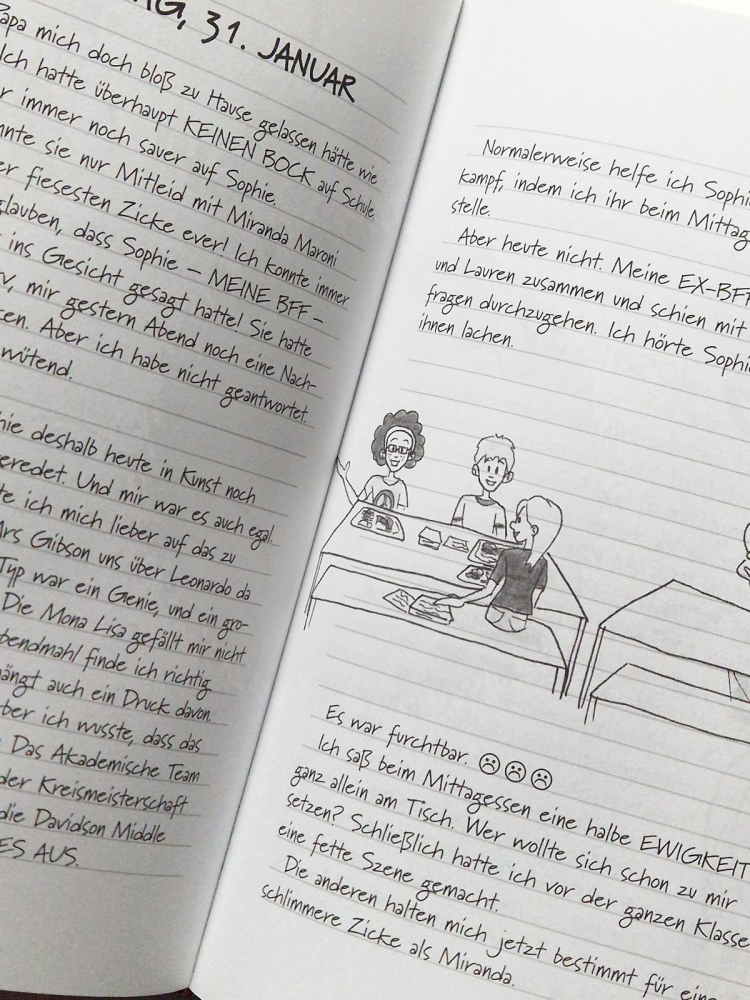 31. JANUAR
Papa mich doch bloß zu Hause gelassen hätte wie
Ich hatte überhaupt KEINEN BOCK auf Schule,
immer noch sauer auf Sophie.
sie nur Mitleid mit Miranda Maroni
fiesesten Zicke ever! Ich konnte immer
glauben, dass Sophie – MEINE BFF –
ins Gesicht gesagt hatte! Sie hatte
mir gestern Abend noch eine Nach-
Aber ich habe nicht geantwortet.
wütend.
deshalb heute in Kunst noch
Und mir war es auch egal.
ich mich lieber auf das zu
Mrs Gibson uns über Leonardo da
Typ war ein Genie, und ein gro-
Die Mona Lisa gefällt mir nicht
finde ich richtig
auch ein Druck davon.
ich wusste, dass das
Das Akademische Team
der Kreismeisterschaft
die Davidson Middle
ES AUS.
Normalerweise helfe ich
kampf, indem ich ihr beim
stelle.
Aber heute nicht. Meine EX-BFF
und Lauren zusammen und schien mit
fragen durchzugehen. Ich hörte
ihnen lachen.
Es war furchtbar. ☹☹☹
Ich saß beim Mittagessen eine halbe EWIGKEIT
ganz allein am Tisch. Wer wollte sich schon zu mir
setzen? Schließlich hatte ich vor der ganzen Klasse
eine fette Szene gemacht.
Die anderen halten mich jetzt bestimmt für eine
schlimmere Zicke als Miranda.